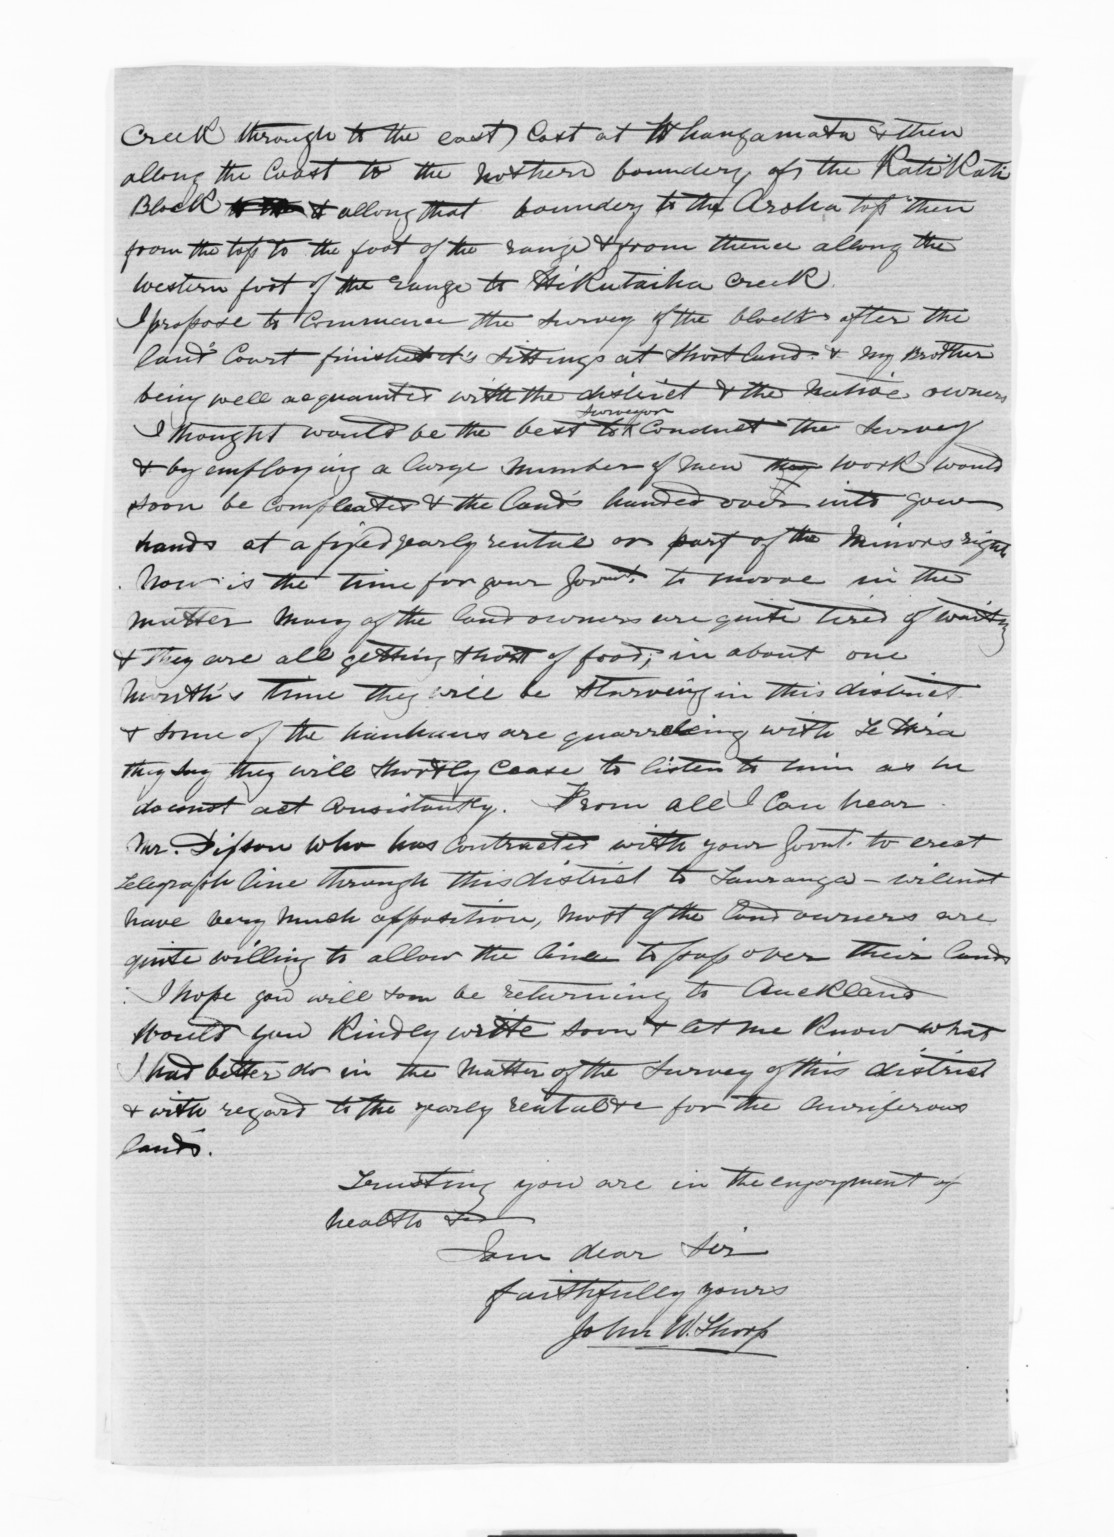 Creek through to the east Cost at Whangamata & then
allong the Coast to the Nothern boundery of the Kati Kati
Block & allong that boundery to the Aroha top then
from the top to the foot of the range & from thence allong the
western foot of the range to Hikutaiha Creek.
I propose to Commence the survey of the block after the
land Court finished it's sittings at Shortland. & My Brother
being well acquainted with the district & the Native owners
surveyor
I thought would be the best to Conduct the Survey
& by employing a large number of men they work would
soon be compleated & the land's handed over into your
hands at a fixed yearly rental or part of the Minors right
. Now is the time for your Govmt. to moove in the
matter Many of the land owners are quite tired of waiting
& they are all getting short of food; in about one
Month's time they will be starveing in this district
& some of the hauhaus are quarreleing with Te Hira
they say they will shortly Cease to listen to him as he
does not act Consistantly. From all I Can hear
Mr. Tipson who has Contracted with your Govnt. to erect
Telegraph line through this district to Tauranga - wil not
have very much opposition, Most of the land owners are
quite willing to allow the line to pass over their lands
. I hope you will soon be returning to Auckland
Would you Kindly write soon & let me Know what
I had better do in the Matter of the Survey of this district
& with regard to the yearly rental &c for the Auriferous
land's.
Trusting you are in the enjoyment of
health &c
I am dear Sir
faithfully yours
John W. Thorp